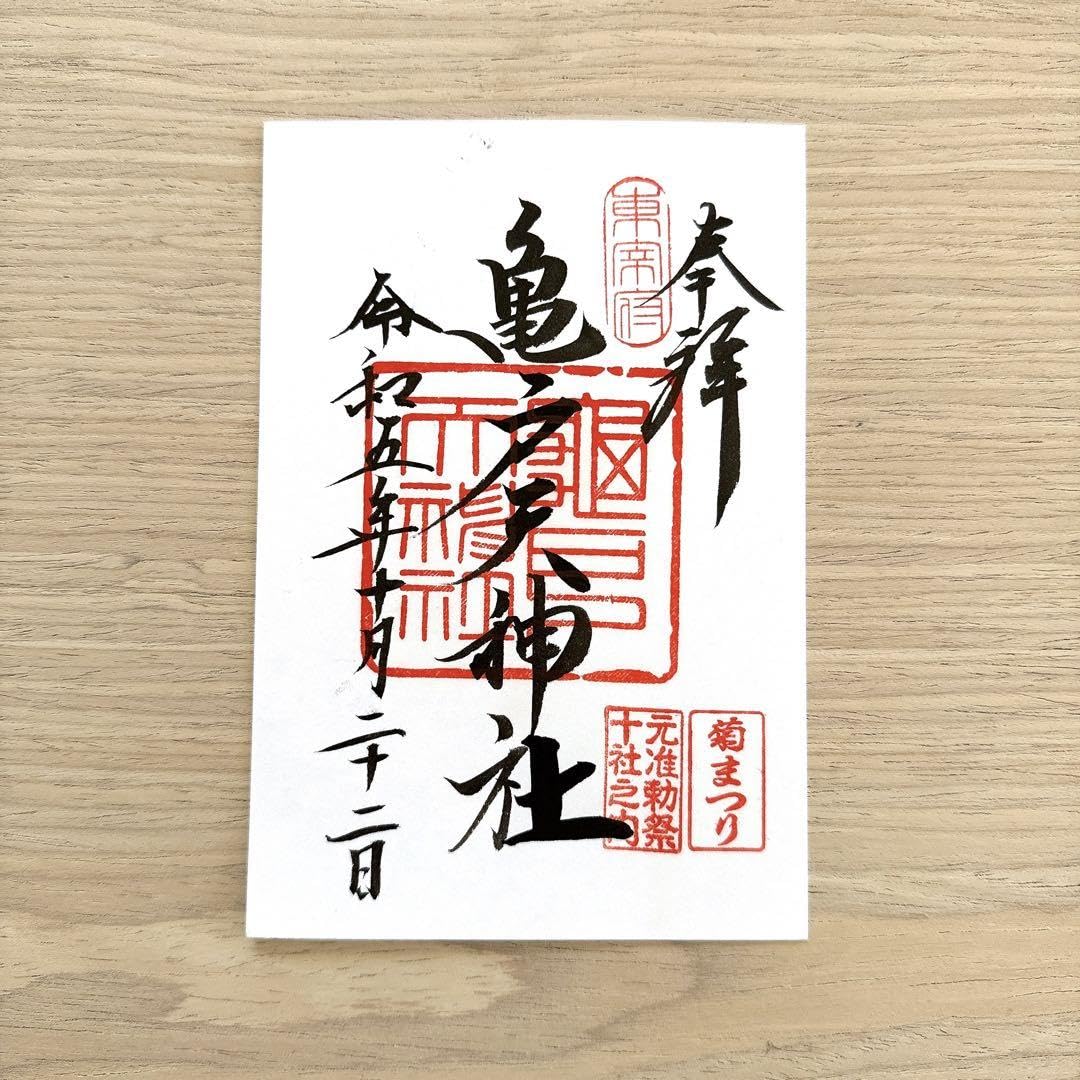 奉拝
東宰府
菊まつり
元准勅祭
十社之内
亀戸天神社
龜戸
天神社
令和五年十月二十二日